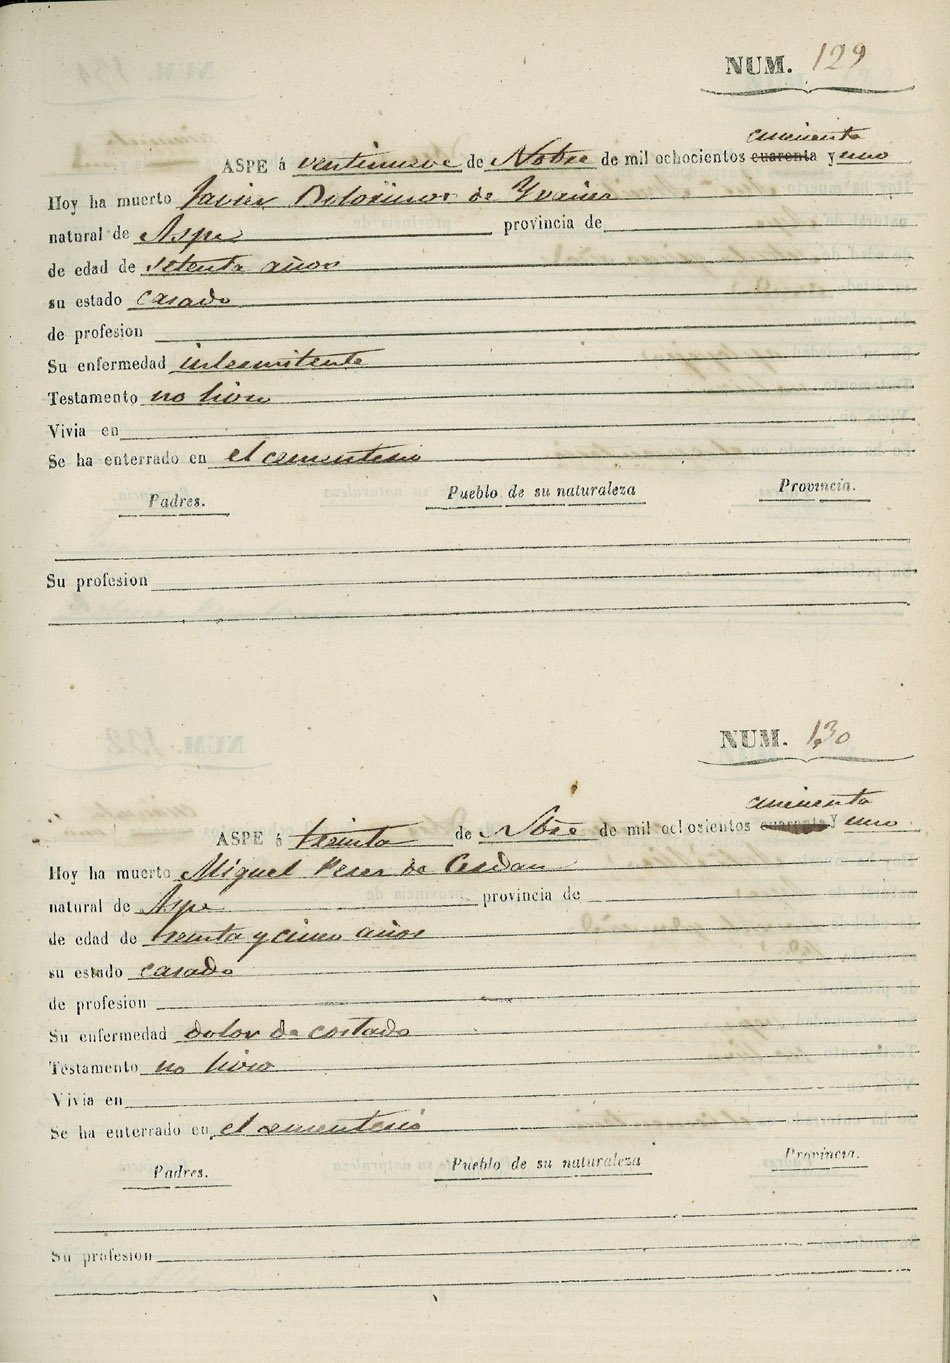 NUM. 129
cincuenta
ASPE á ventinueve de Nobre de mil ochocientos cuarenta y uno
Hoy ha muerto Javier de
natural de Aspe provincia de
de edad de setenta años
su estado casado
de profesion
Su enfermedad intermitente
Testamento no hizo
Vivia en
Se ha enterrado en el cementerio
Padres. Pueblo de su naturaleza Provincia.
Su profesion
NUM. 130
cincuenta
ASPE á treinta de Nbre de mil ochosientos cuarenta y uno
Hoy ha muerto Miguel Peres de Cerdan
natural de Aspe provincia de
de edad de treinta y cinco años
su estado casado
de profesion
Su enfermedad dolor de costado
Testamento no hizo
Vivia en
Se ha enterrado en el cementerio
Padres. Pueblo de su naturaleza Provincia.
Su profesion